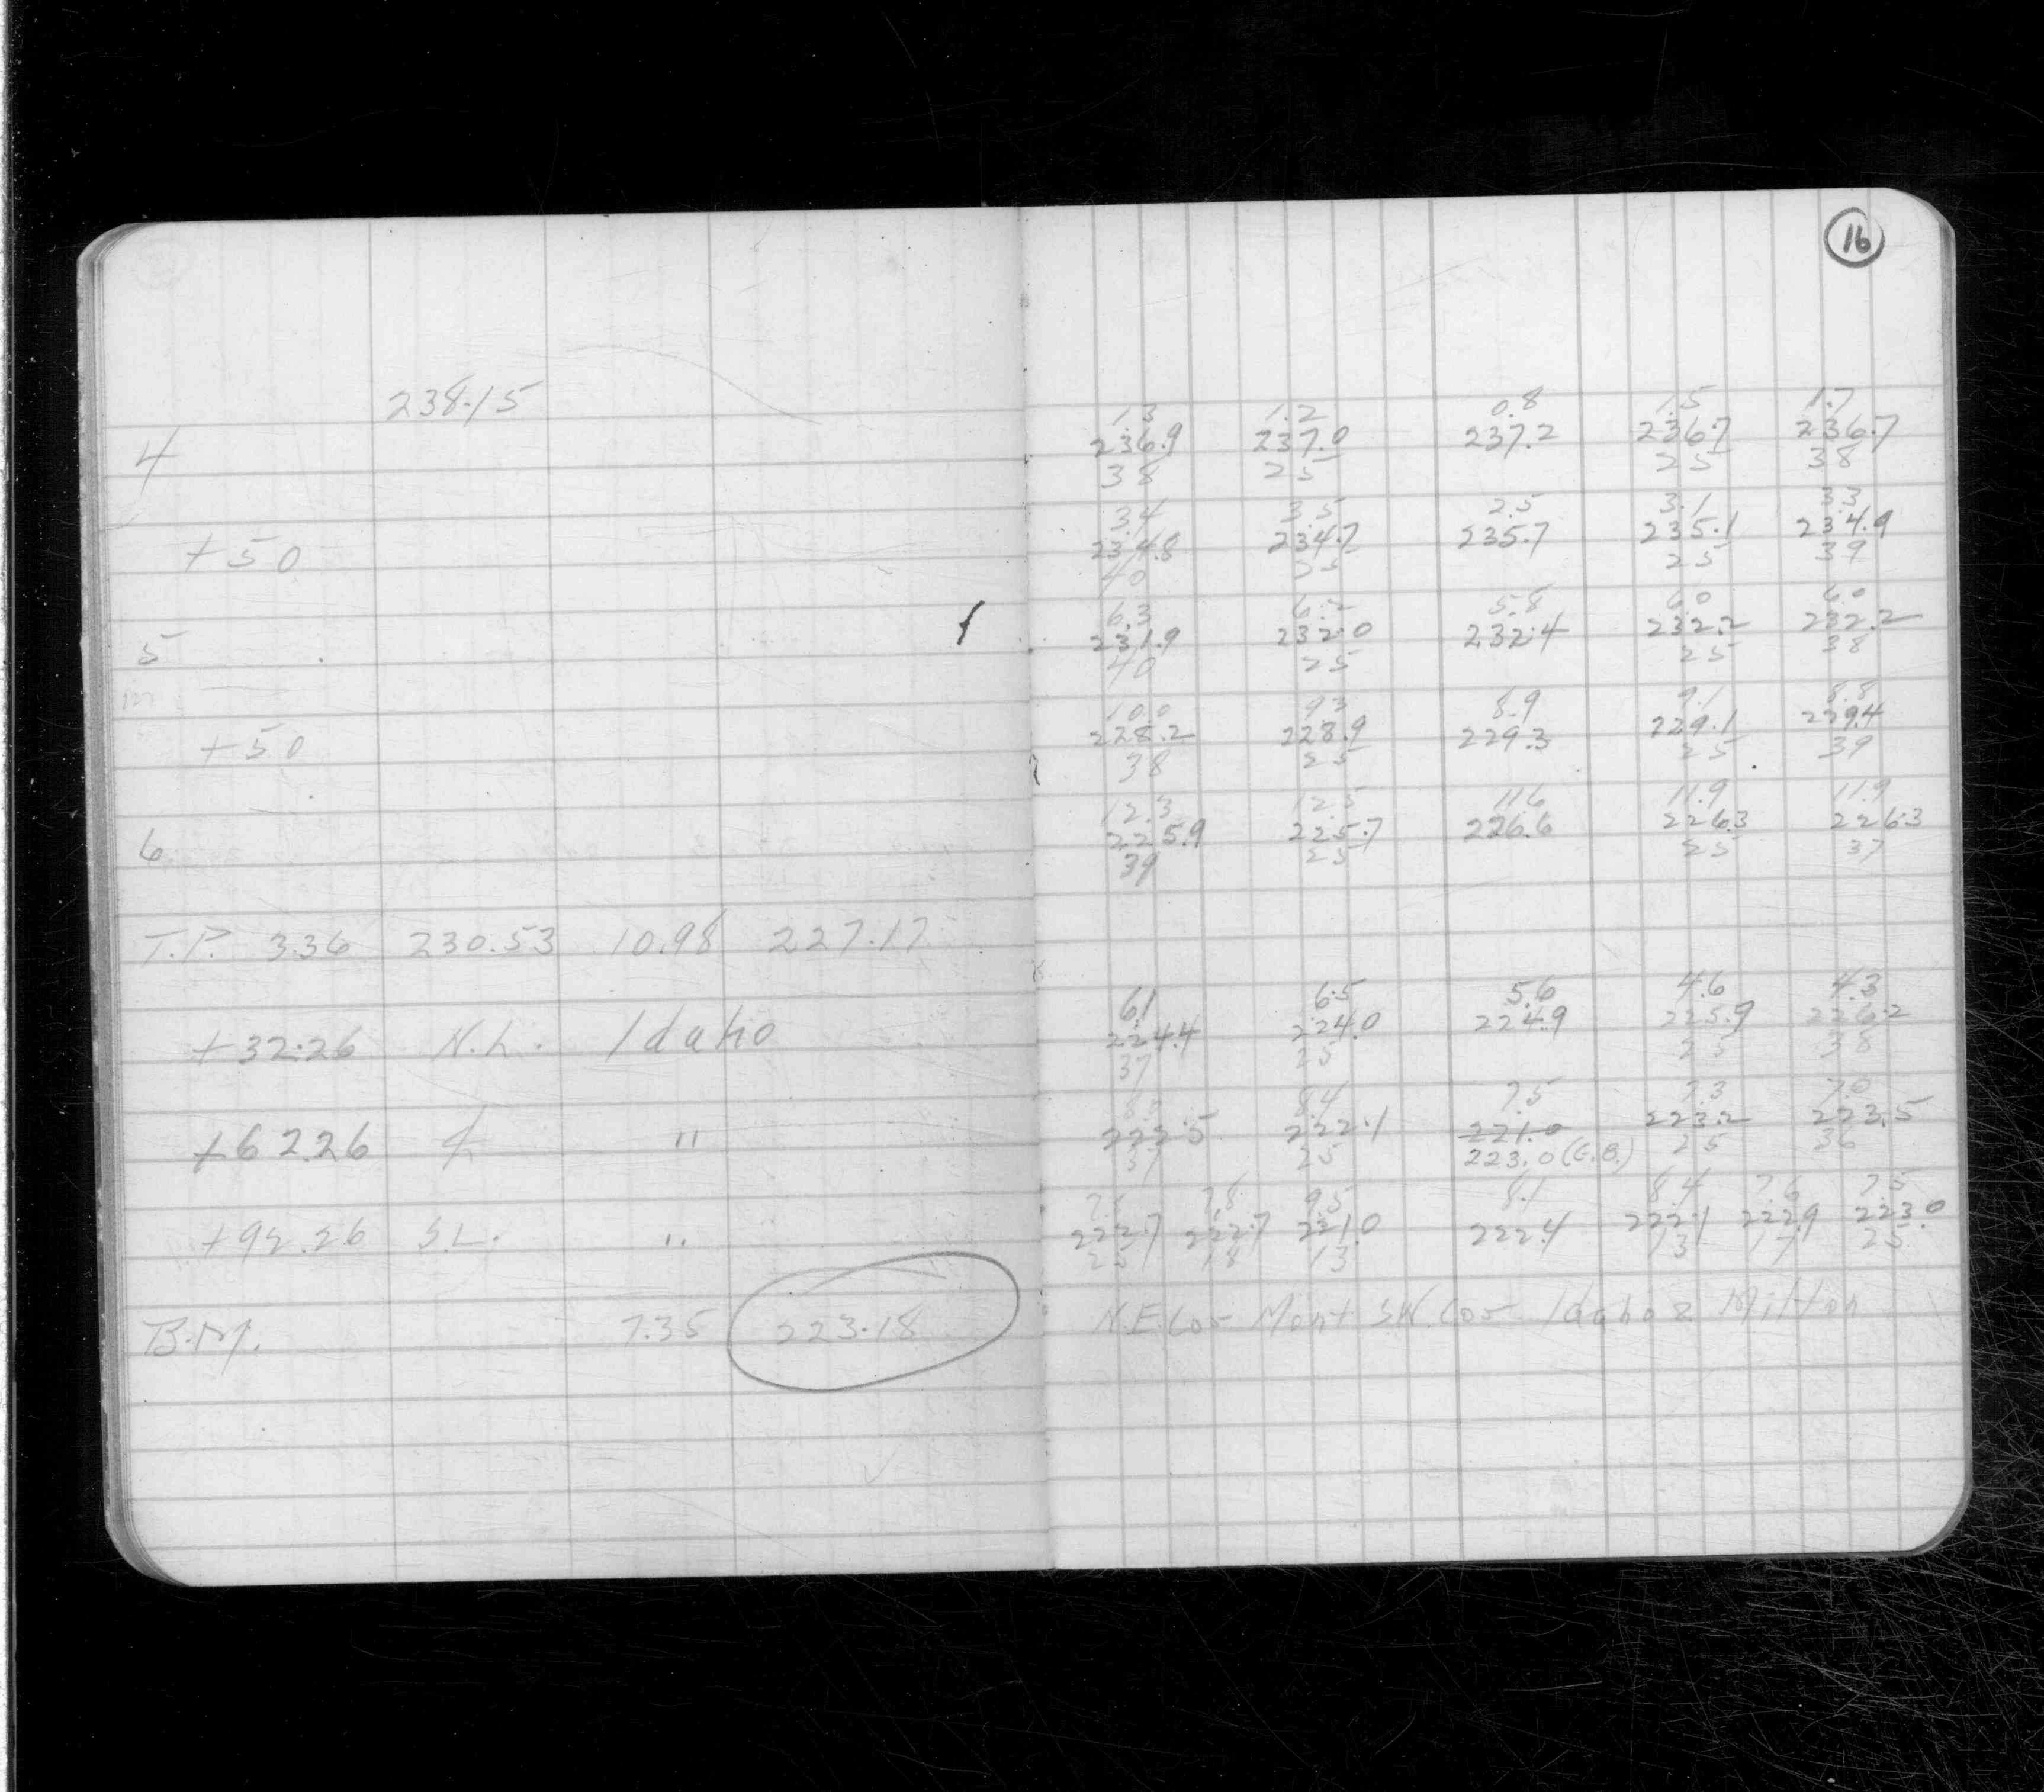 16
238.15
4
1.3 1.2 0.8 1.5 1.7
236.9 237.0 237.2 236.7 236.7
38 25 25 38
+50
3.4 3.5 2.5 3.1 3.3
234.8 234.7 235.7 235.1 234.9
40 25 25 39
5
6.3 6.2 5.8 6.0 6.0
231.9 232.0 232.4 232.2 232.2
40 25 25 38
+50
10.0 9.3 8.9 9.1 8.8
228.2 228.9 229.3 229.1 229.4
38 25 25 39
6
12.3 12.5 11.6 11.9 11.9
225.9 225.7 226.6 226.3 226.3
39 25 25 37
T.P. 3.36 230.53 10.98 227.17
+32.26 N.L. Idaho
6.1 6.5 5.6 4.6 4.3
224.4 224.0 224.9 225.9 226.2
37 25 25 38
+62.26 ℄ "
8.4 7.5 7.3 7.0
222.5 222.1 221.0 223.2 223.5
37 25 223.0 (G.B.) 25 36
+92.26 S.L. "
7.8 9.5 8.1 8.4 7.6 7.5
222.7 222.7 221.0 222.4 222.1 222.9 223.0
25 18 13 13 17 25
B.M. 7.35 223.18 N.E. Cor Mont S.W. Cor Idaho & Milton